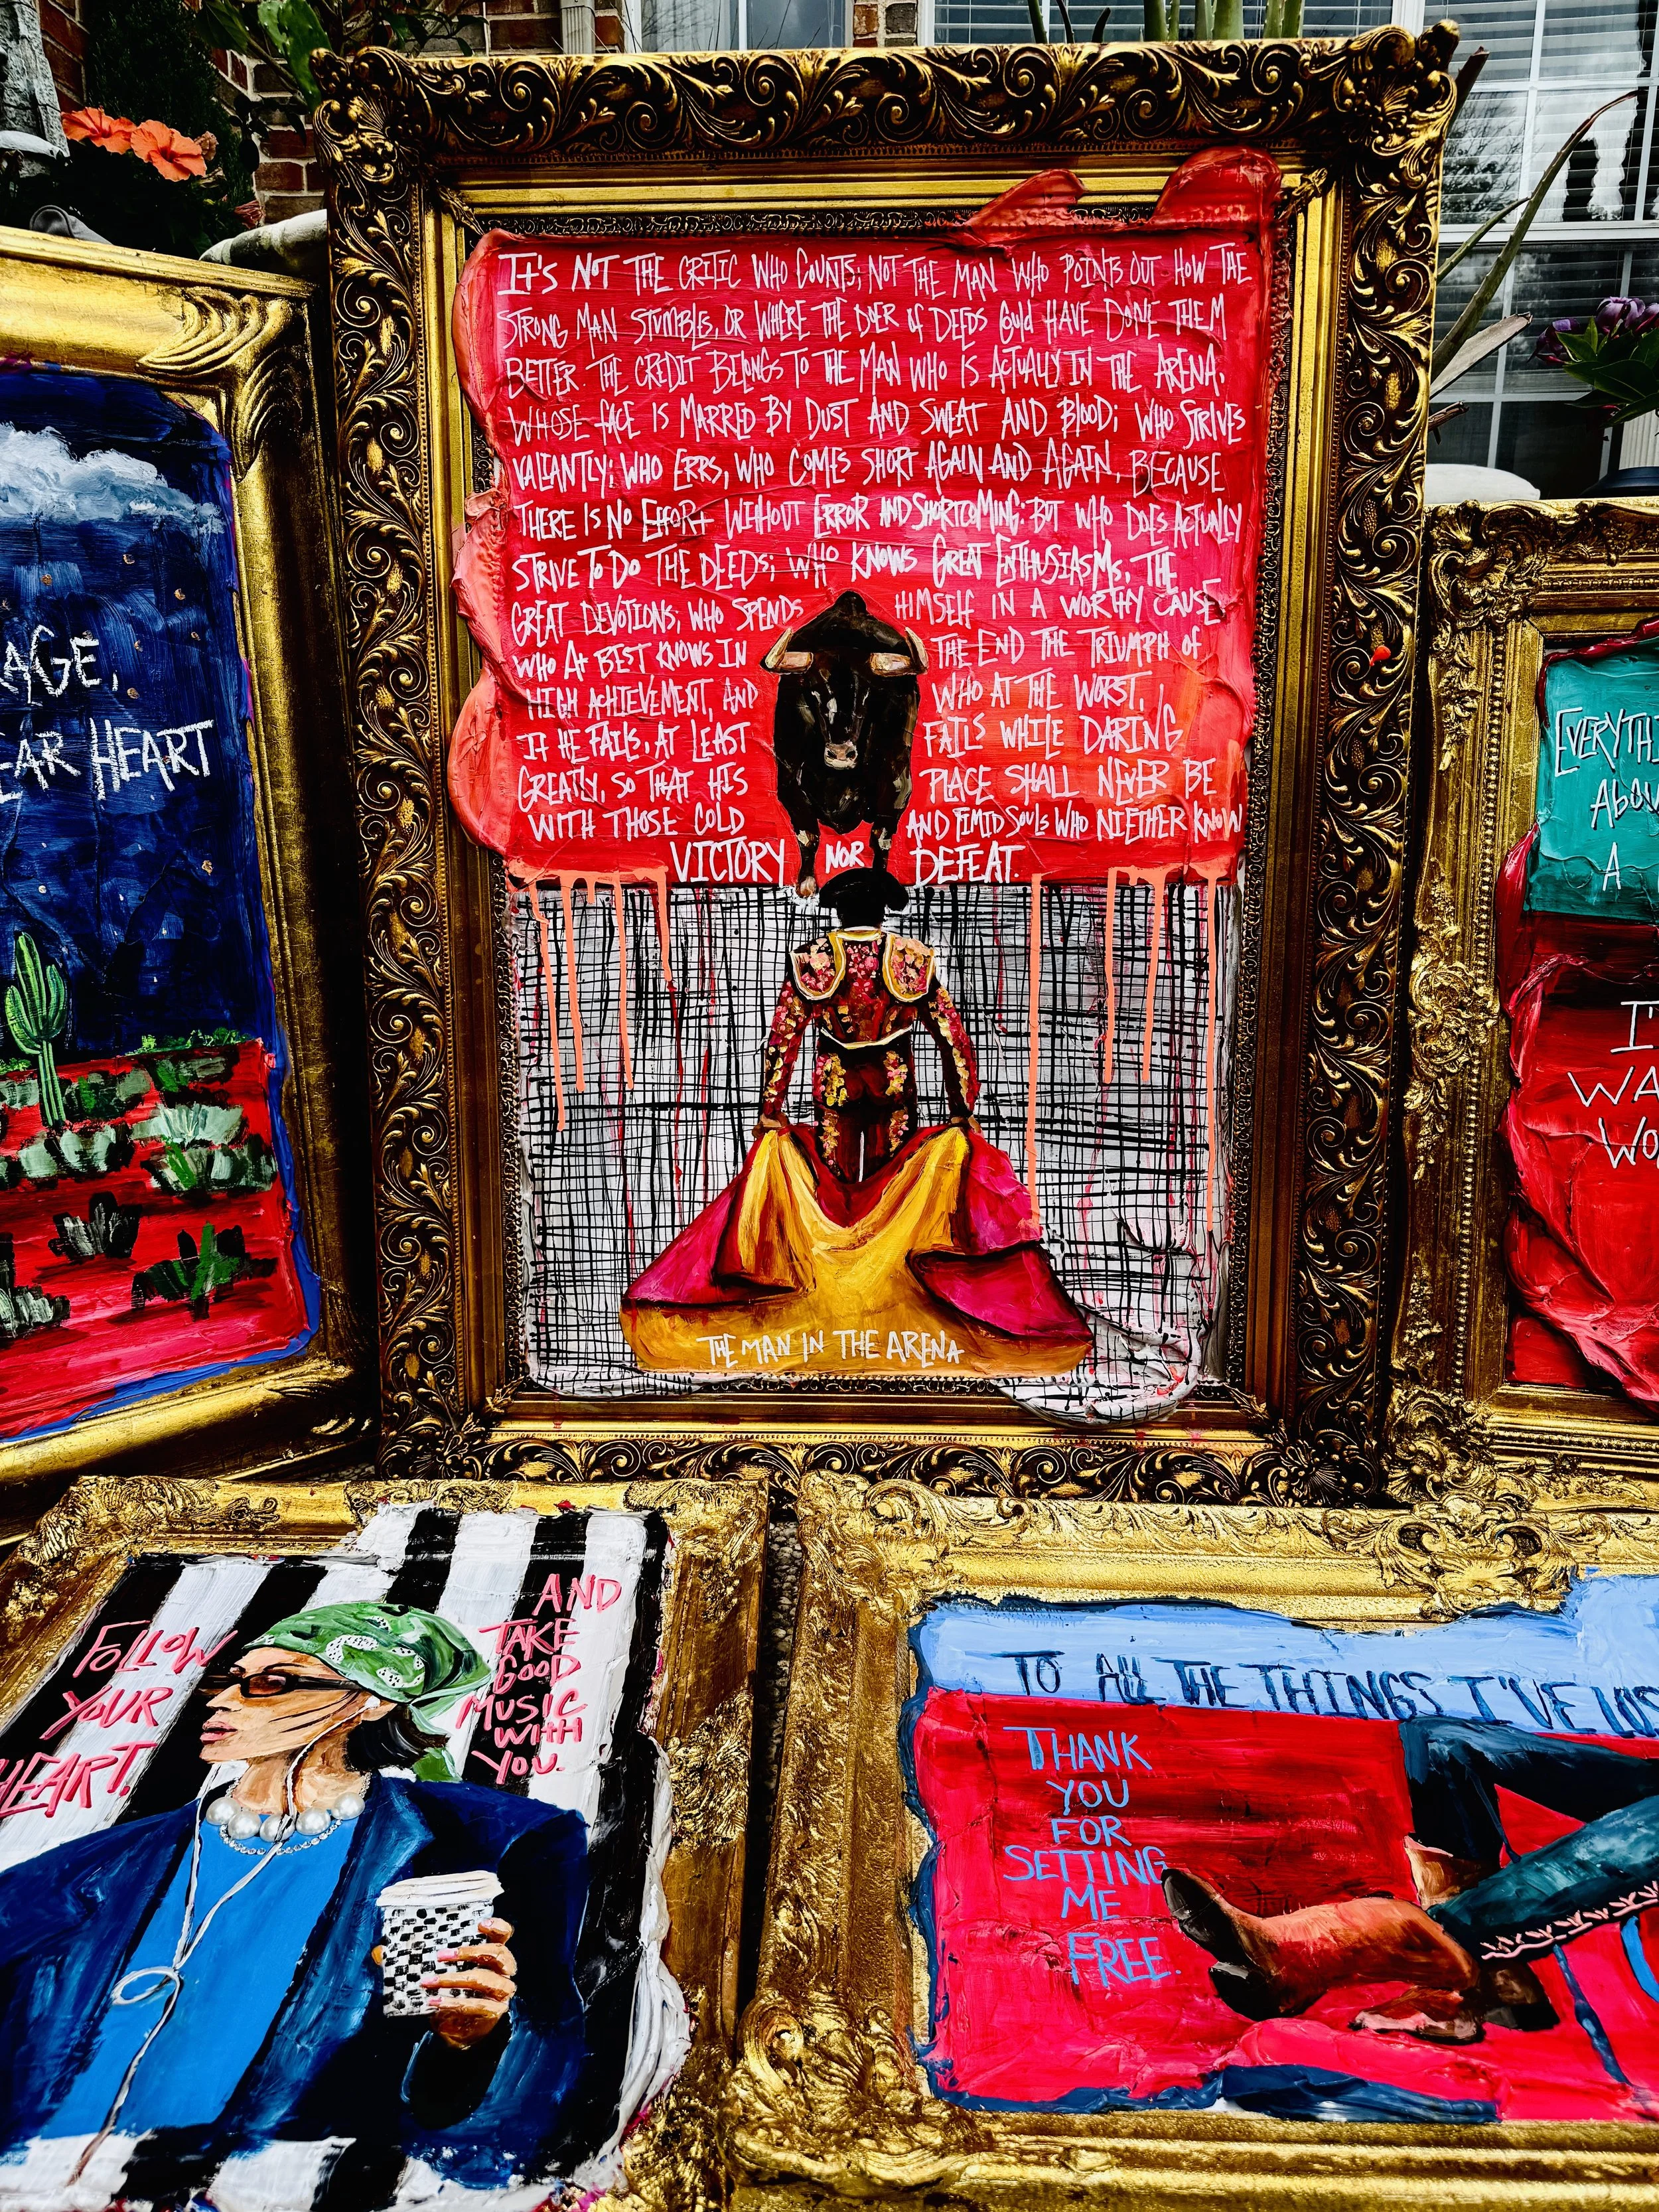 IT'S NOT THE CRITIC WHO COUNTS; NOT THE MAN WHO POINTS OUT HOW THE
STRONG MAN STUMBLES, OR WHERE THE DOER of DEEDS COULD HAVE DONE THEM
BETTER. THE CREDIT BELONGS TO THE MAN WHO IS ACTUALLY IN THE ARENA,
WHOSE FACE IS MARRED BY DUST AND SWEAT AND BLOOD; WHO STRIVES
VALIANTLY; WHO ERRS, WHO COMES SHORT AGAIN AND AGAIN, BECAUSE
THERE IS NO EFFORT WITHOUT ERROR AND SHORTCOMING; BUT WHO DOES ACTUALLY
STRIVE TO DO THE DEEDS; WHO KNOWS GREAT ENTHUSIASMS, THE
GREAT DEVOTIONS; WHO SPENDS HIMSELF IN A WORTHY CAUSE
WHO AT BEST KNOWS IN THE END THE TRIUMPH OF
HIGH ACHIEVEMENT, AND WHO AT THE WORST,
IF HE FAILS, AT LEAST FAILS WHILE DARING
GREATLY, SO THAT HIS PLACE SHALL NEVER BE
WITH THOSE COLD AND TIMID SOULS WHO NIETHER KNOW
VICTORY NOR DEFEAT.
THE MAN IN THE ARENA
AGE,
EAR HEART
EVERYTHI
ABOU
A
I'
WA
WO
FOLLOW
YOUR
HEART,
AND
TAKE
GOOD
MUSIC
WITH
YOU.
TO ALL THE THINGS I'VE LOS
THANK
YOU
FOR
SETTING
ME
FREE.